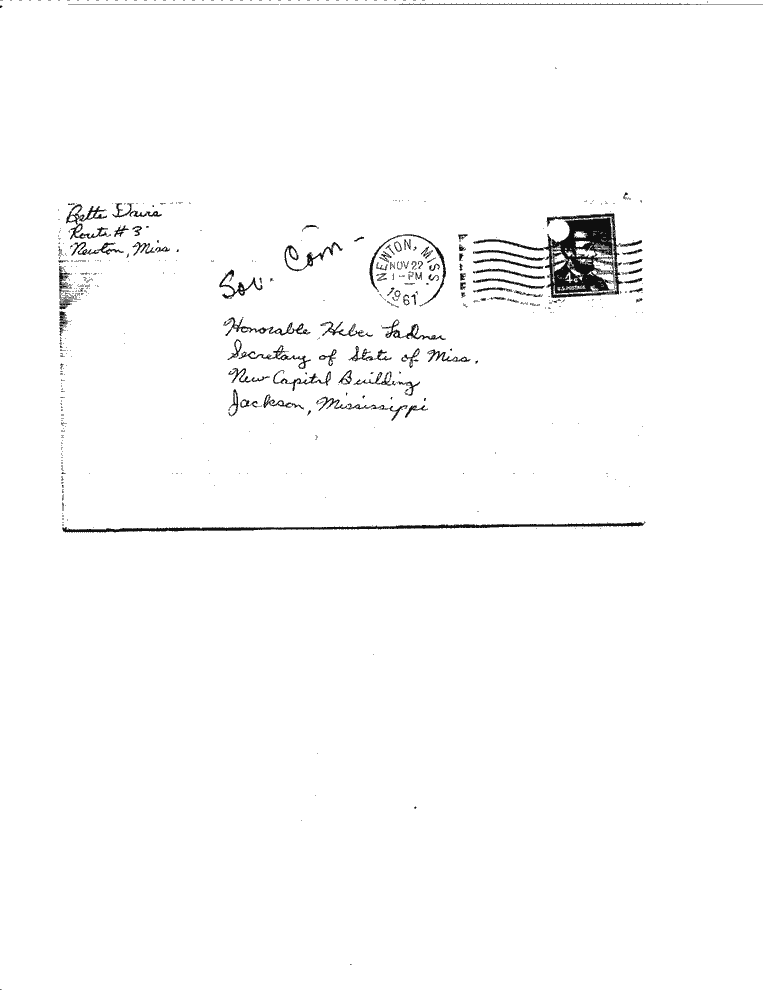 Bette Davis
Route # 3
Newton, Miss.
Sov. Com -
NEWTON, MISS.
NOV 22
1-PM
1961
Honorable Heber Ladner
Secretary of State of Miss.
New Capitol Building
Jackson, Mississippi
4¢